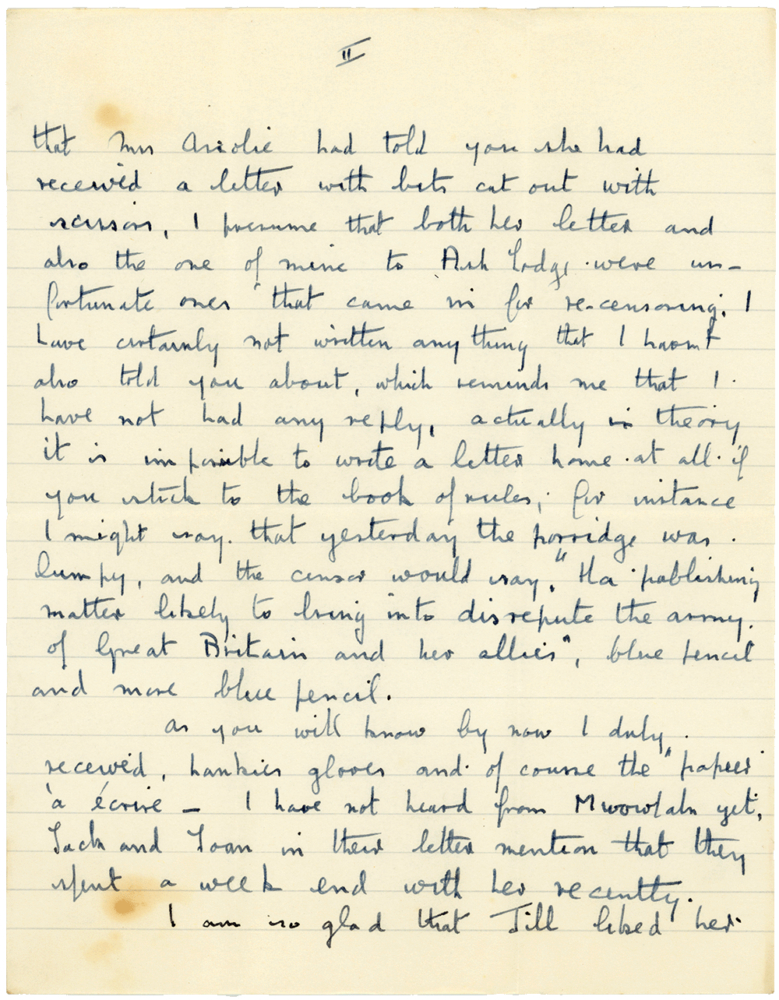 II
that Mrs had told you she had
received a letter with bits cut out with
scissors, I presume that both her letter and
also the one of mine to Ash Lodge were un-
fortunate ones that came in for re-censoring. I
have certainly not written anything that I havn't
also told you about, which reminds me that I
have not had any reply, actually in theory
it is impossible to write a letter home at all if
you stick to the book of rules, for instance
I might say that yesterday the porridge was
lumpy, and the censor would say, "Ha publishing
matter likely to bring into disrepute the army
of Great Britain and her allies", blue pencil
and more blue pencil.
As you will know by now I duly
received, hankies gloves and of course the "papier
à écrire – I have not heard from yet,
Jack and Joan in their letter mention that they
spent a week end with her recently.
I am so glad that Jill liked her